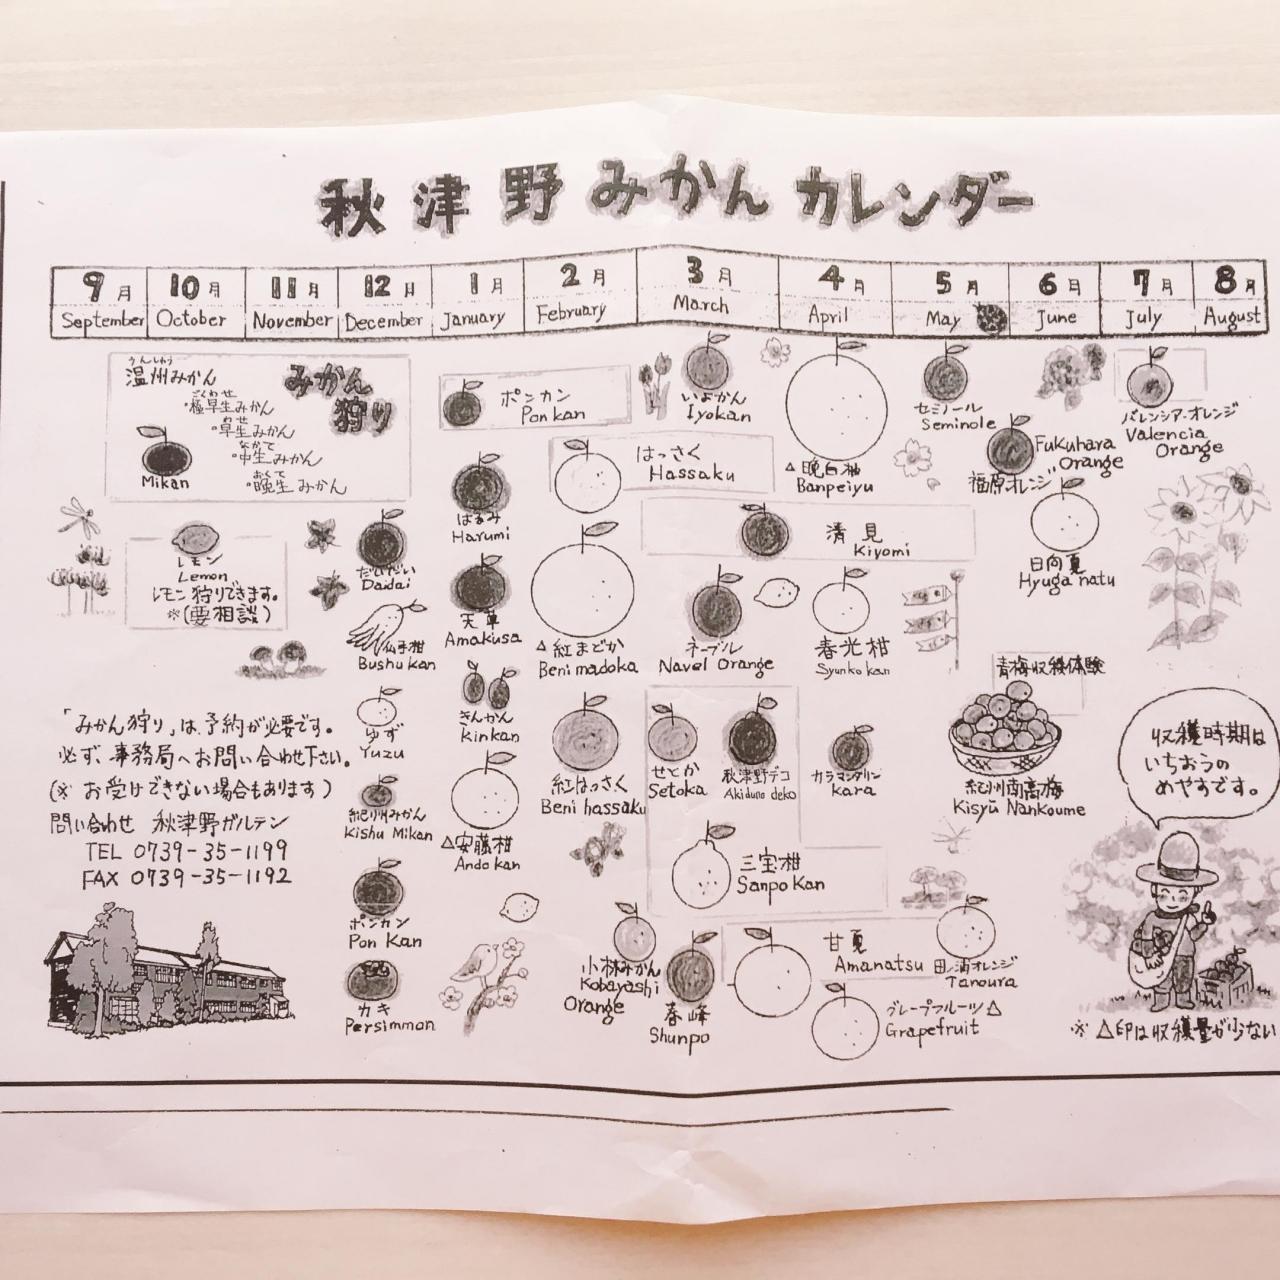 秋津野みかんカレンダー
9月 10月 11月 12月 1月 2月 3月 4月 5月 6月 7月 8月
September October November December January February March April May June July August
うんしゅう
温州みかん
みかん狩り
ごくわせ
・極早生みかん
わせ
・早生みかん
なかて
・中生みかん
おくて
・晩生みかん
Mikan
レモン
Lemon
レモン狩りできます。
※(要相談)
だいだい
Daidai
仏手柑
Bushu kan
ゆず
Yuzu
紀州みかん
Kishu Mikan
ポンカン
Pon Kan
カキ
Persimmon
ポンカン
Pon kan
はるみ
Harumi
天草
Amakusa
きんかん
Kinkan
△安藤柑
Ando kan
はっさく
Hassaku
△紅まどか
Beni madoka
紅はっさく
Beni hassaku
小林みかん
Kobayashi
Orange
いよかん
Iyokan
清見
Kiyomi
ネーブル
Navel Orange
せとか
Setoka
秋津野デコ
Akiduno deko
三宝柑
Sanpo Kan
春峰
Shunpo
△晩白柚
Banpeiyu
春光柑
Syunko kan
カラマンダリン
Kara
甘夏
Amanatsu
グレープフルーツ△
Grapefruit
セミノール
Seminole
田ノ浦オレンジ
Tanoura
Fukuhara
Orange
福原オレンジ
日向夏
Hyuga natu
青梅収穫体験
紀州南高梅
Kisyū Nankoume
バレンシア・オレンジ
Valencia
Orange
「みかん狩り」は予約が必要です。
必ず、事務局へお問い合わせ下さい。
(※ お受けできない場合もあります)
問い合わせ 秋津野ガルテン
TEL 0739-35-1199
FAX 0739-35-1192
収穫時期は
いちおうの
めやすです。
※ △印は収穫量が少ない